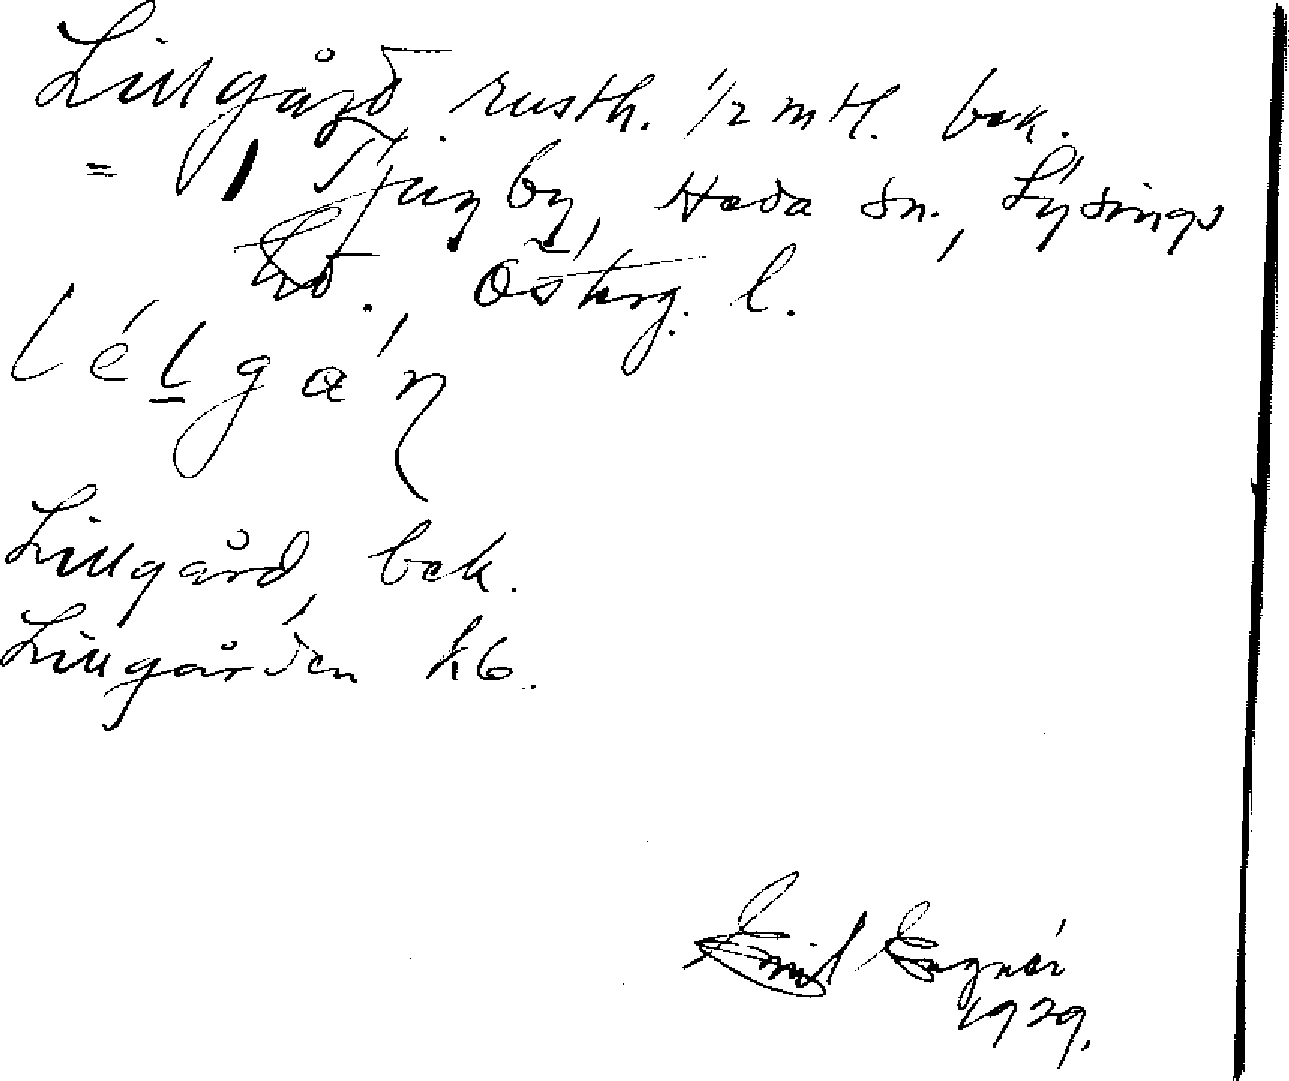 Lillgård, rusth. 1/2 mtl. bek.
= 1 Tjugby, Heda sn., Lysings
hd., Österg. l.
lélgáɳ
Lillgård, bek.
Lillgården kb.
Emil Engnér
1929.